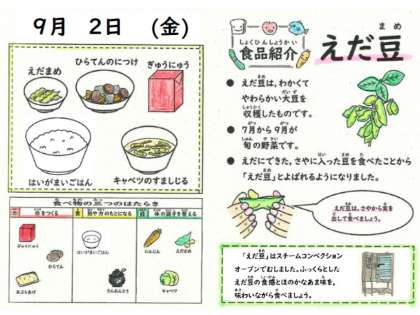 9月 2日 (金)
えだまめ
ひらてんのにつけ
ぎゅうにゅう
はいがまいごはん
キャベツのすましじる
食べ物の三つのはたらき
赤 血をつくる
黄 熱や力のもとになる
緑 体の調子を整える
ぎゅうにゅう
ひらてん
あぶらあげ
はいがまいごはん
でんぷんとう
にんじん
えだまめ
キャベツ
しょくひんしょうかい
食品紹介
まめ
えだ豆
● えだ豆は、わかくて
やわらかい大豆を
収穫したものです。
● 7月から9月が
旬の野菜です。
● えだにできた、さやに入った豆を食べたことから
「えだ豆」とよばれるようになりました。
えだ豆は、さやから実を
出して食べましょう。
「えだ豆」はスチームコンベクション
オーブンでむしました。ふっくらとした
えだ豆の食感とほのかなあま味を、
味わいながら食べましょう。